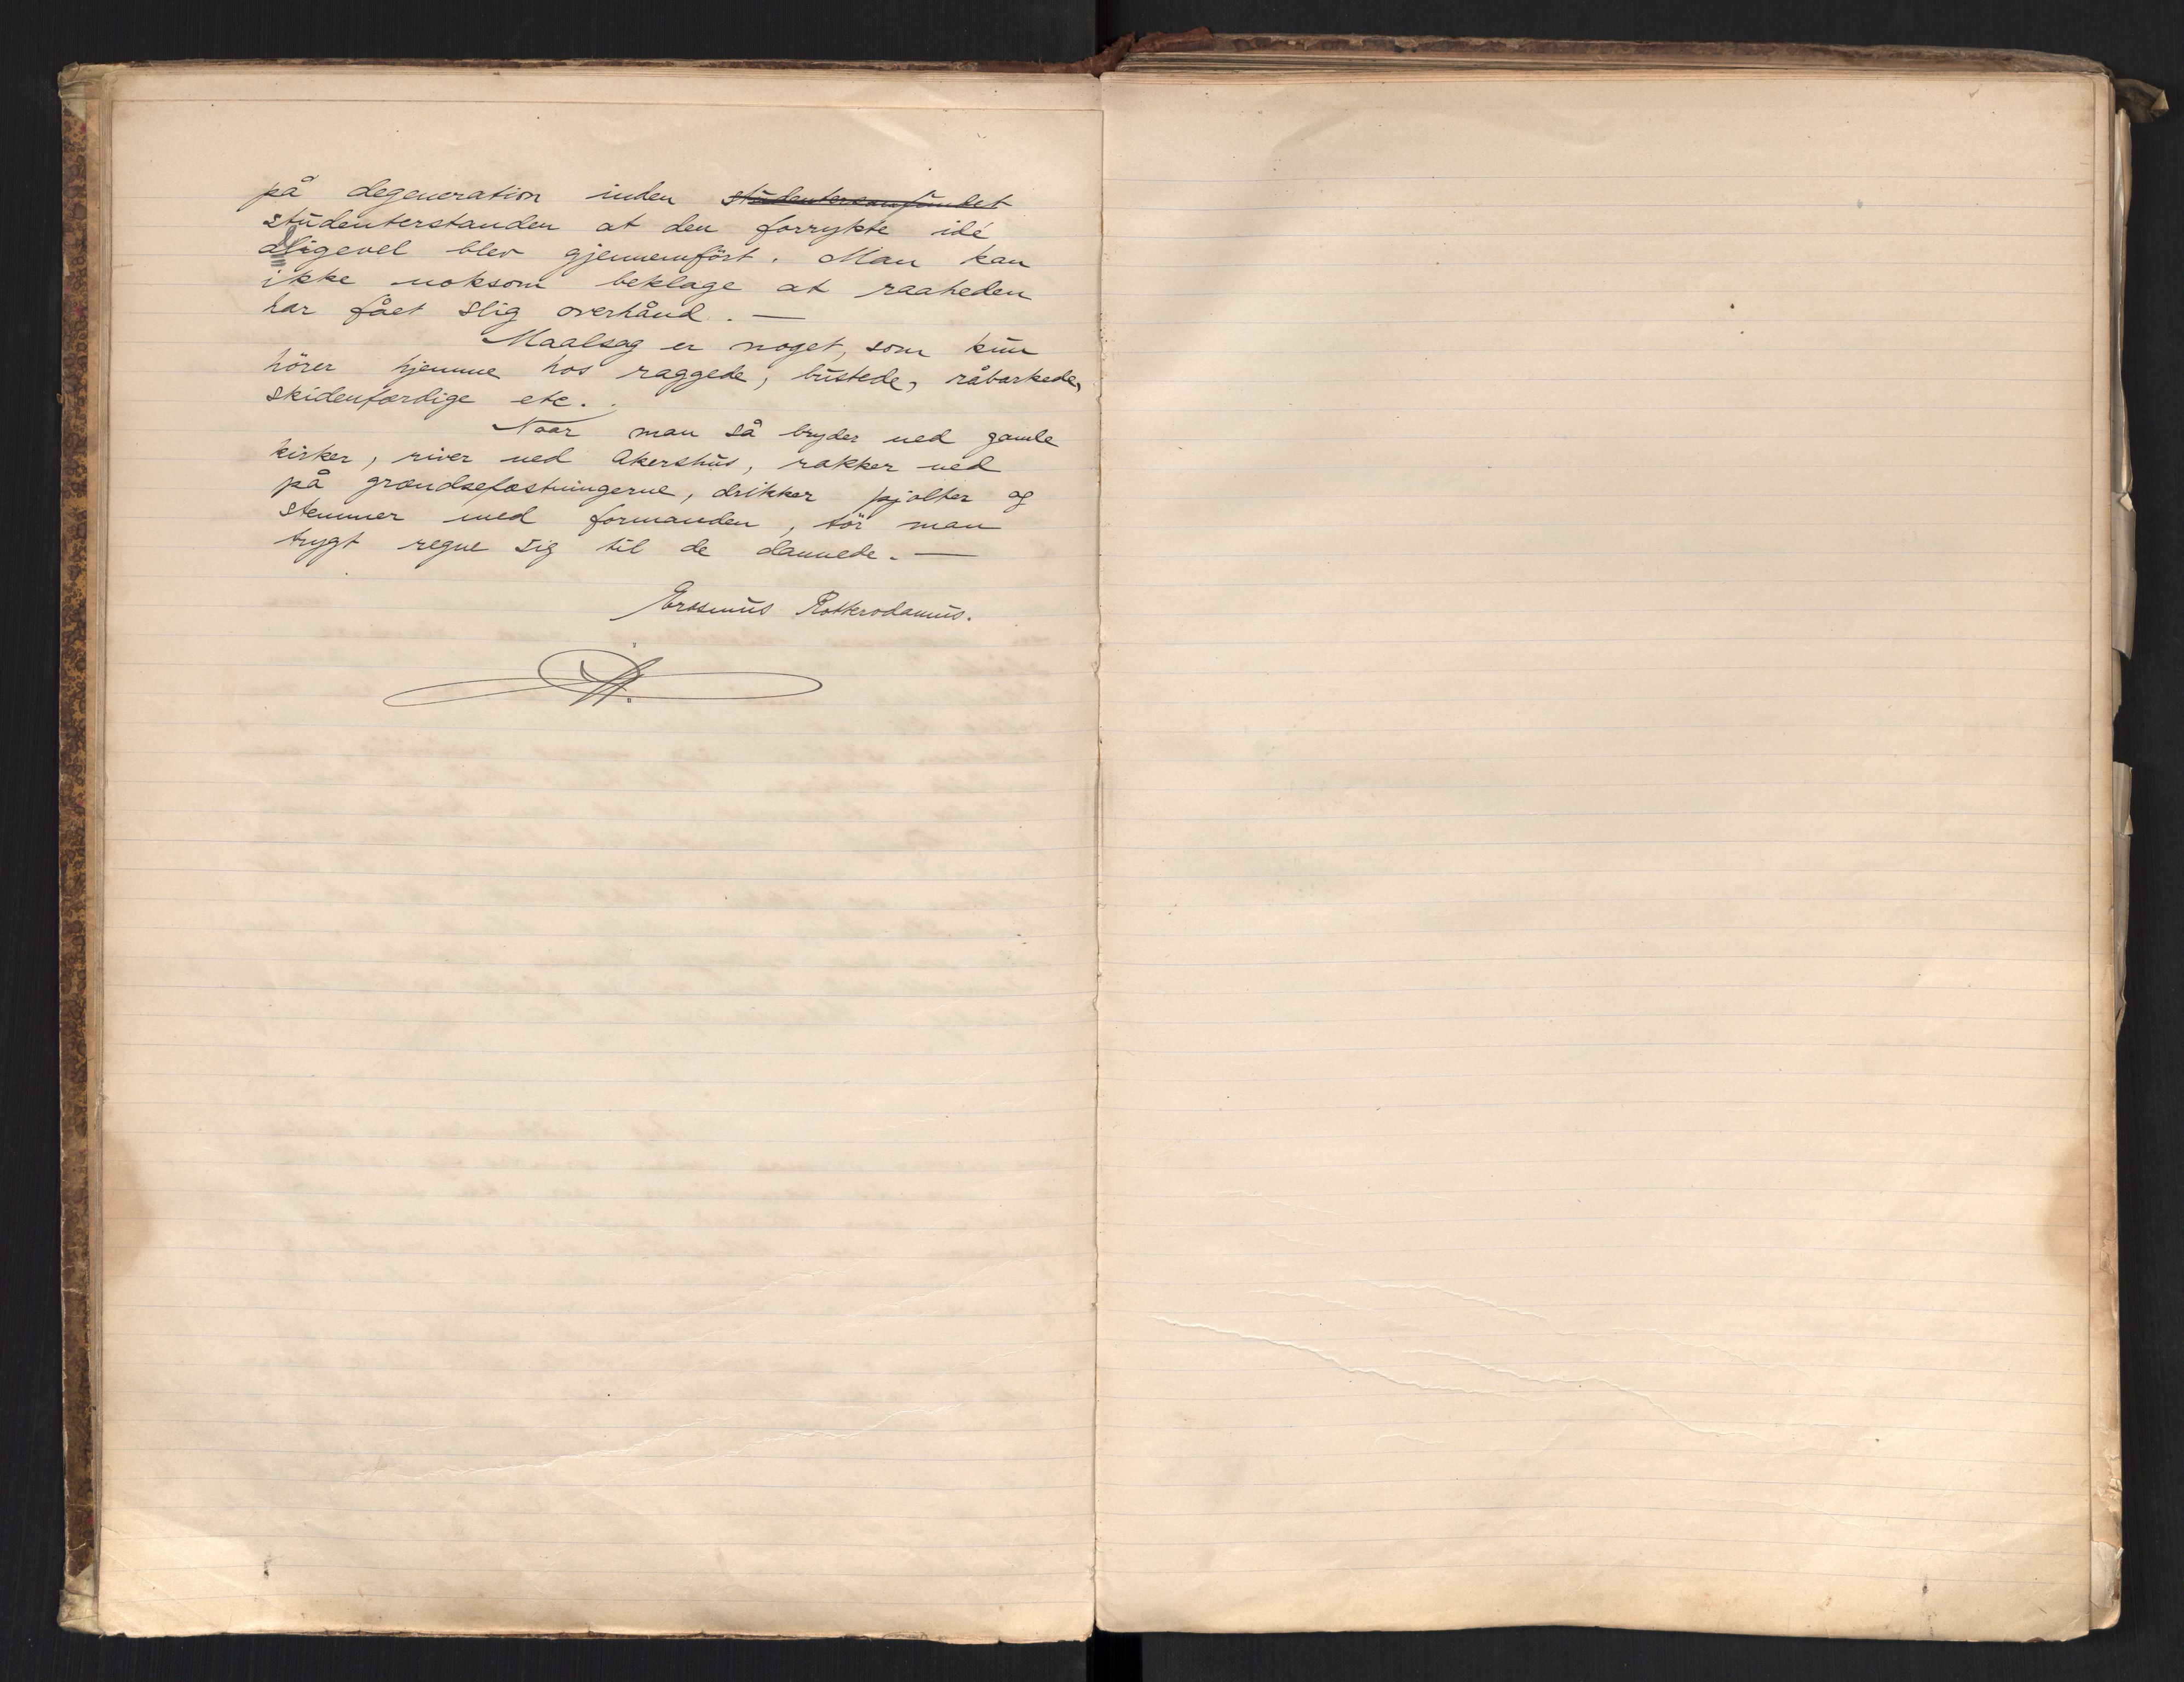 på degeneration inden studentersamfundet
studenterstanden at den forrykte idé
alligevel blev gjennemført. Man kan
ikke noksom beklage at raaheden
har fået slig overhånd. —
Maalsag er noget, som kun
hører hjemme hos raggede, bustede, råbarkede,
skidenfærdige etc.
Naar man så bryder ned gamle
kirker, river ned Akershus, rakker ned
på grændsefæstningerne, drikker pjolter og
stemmer med formanden, tör man
trygt regne sig til de dannede. —
Erasmus Rotterodamus.